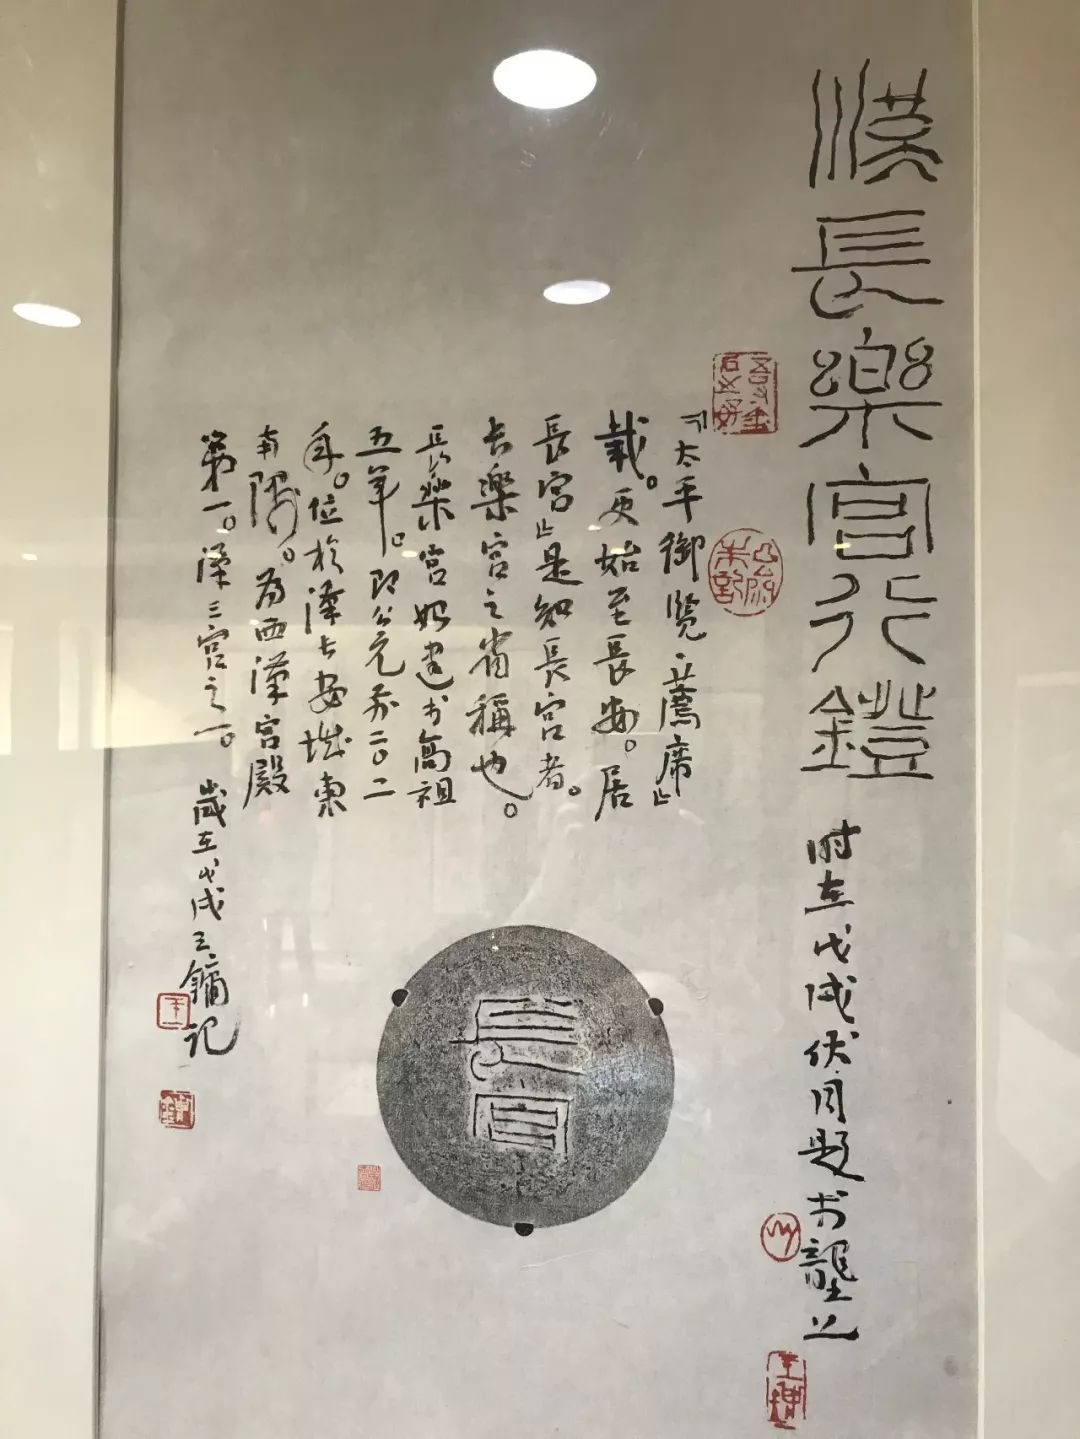 漢長樂宮行鐙
时在戊戌伏月题於
『太平御覽·薦席』
載。更始至長安。居
長宮』是知長宮者。
长樂宮之省稱也。
長樂宮始建於高祖
五年。即公元前二〇二
年。位於漢长安城東
南隅。为西漢宮殿
第一。漢三宮之一。
歲在戊戌王鏞记
長宮